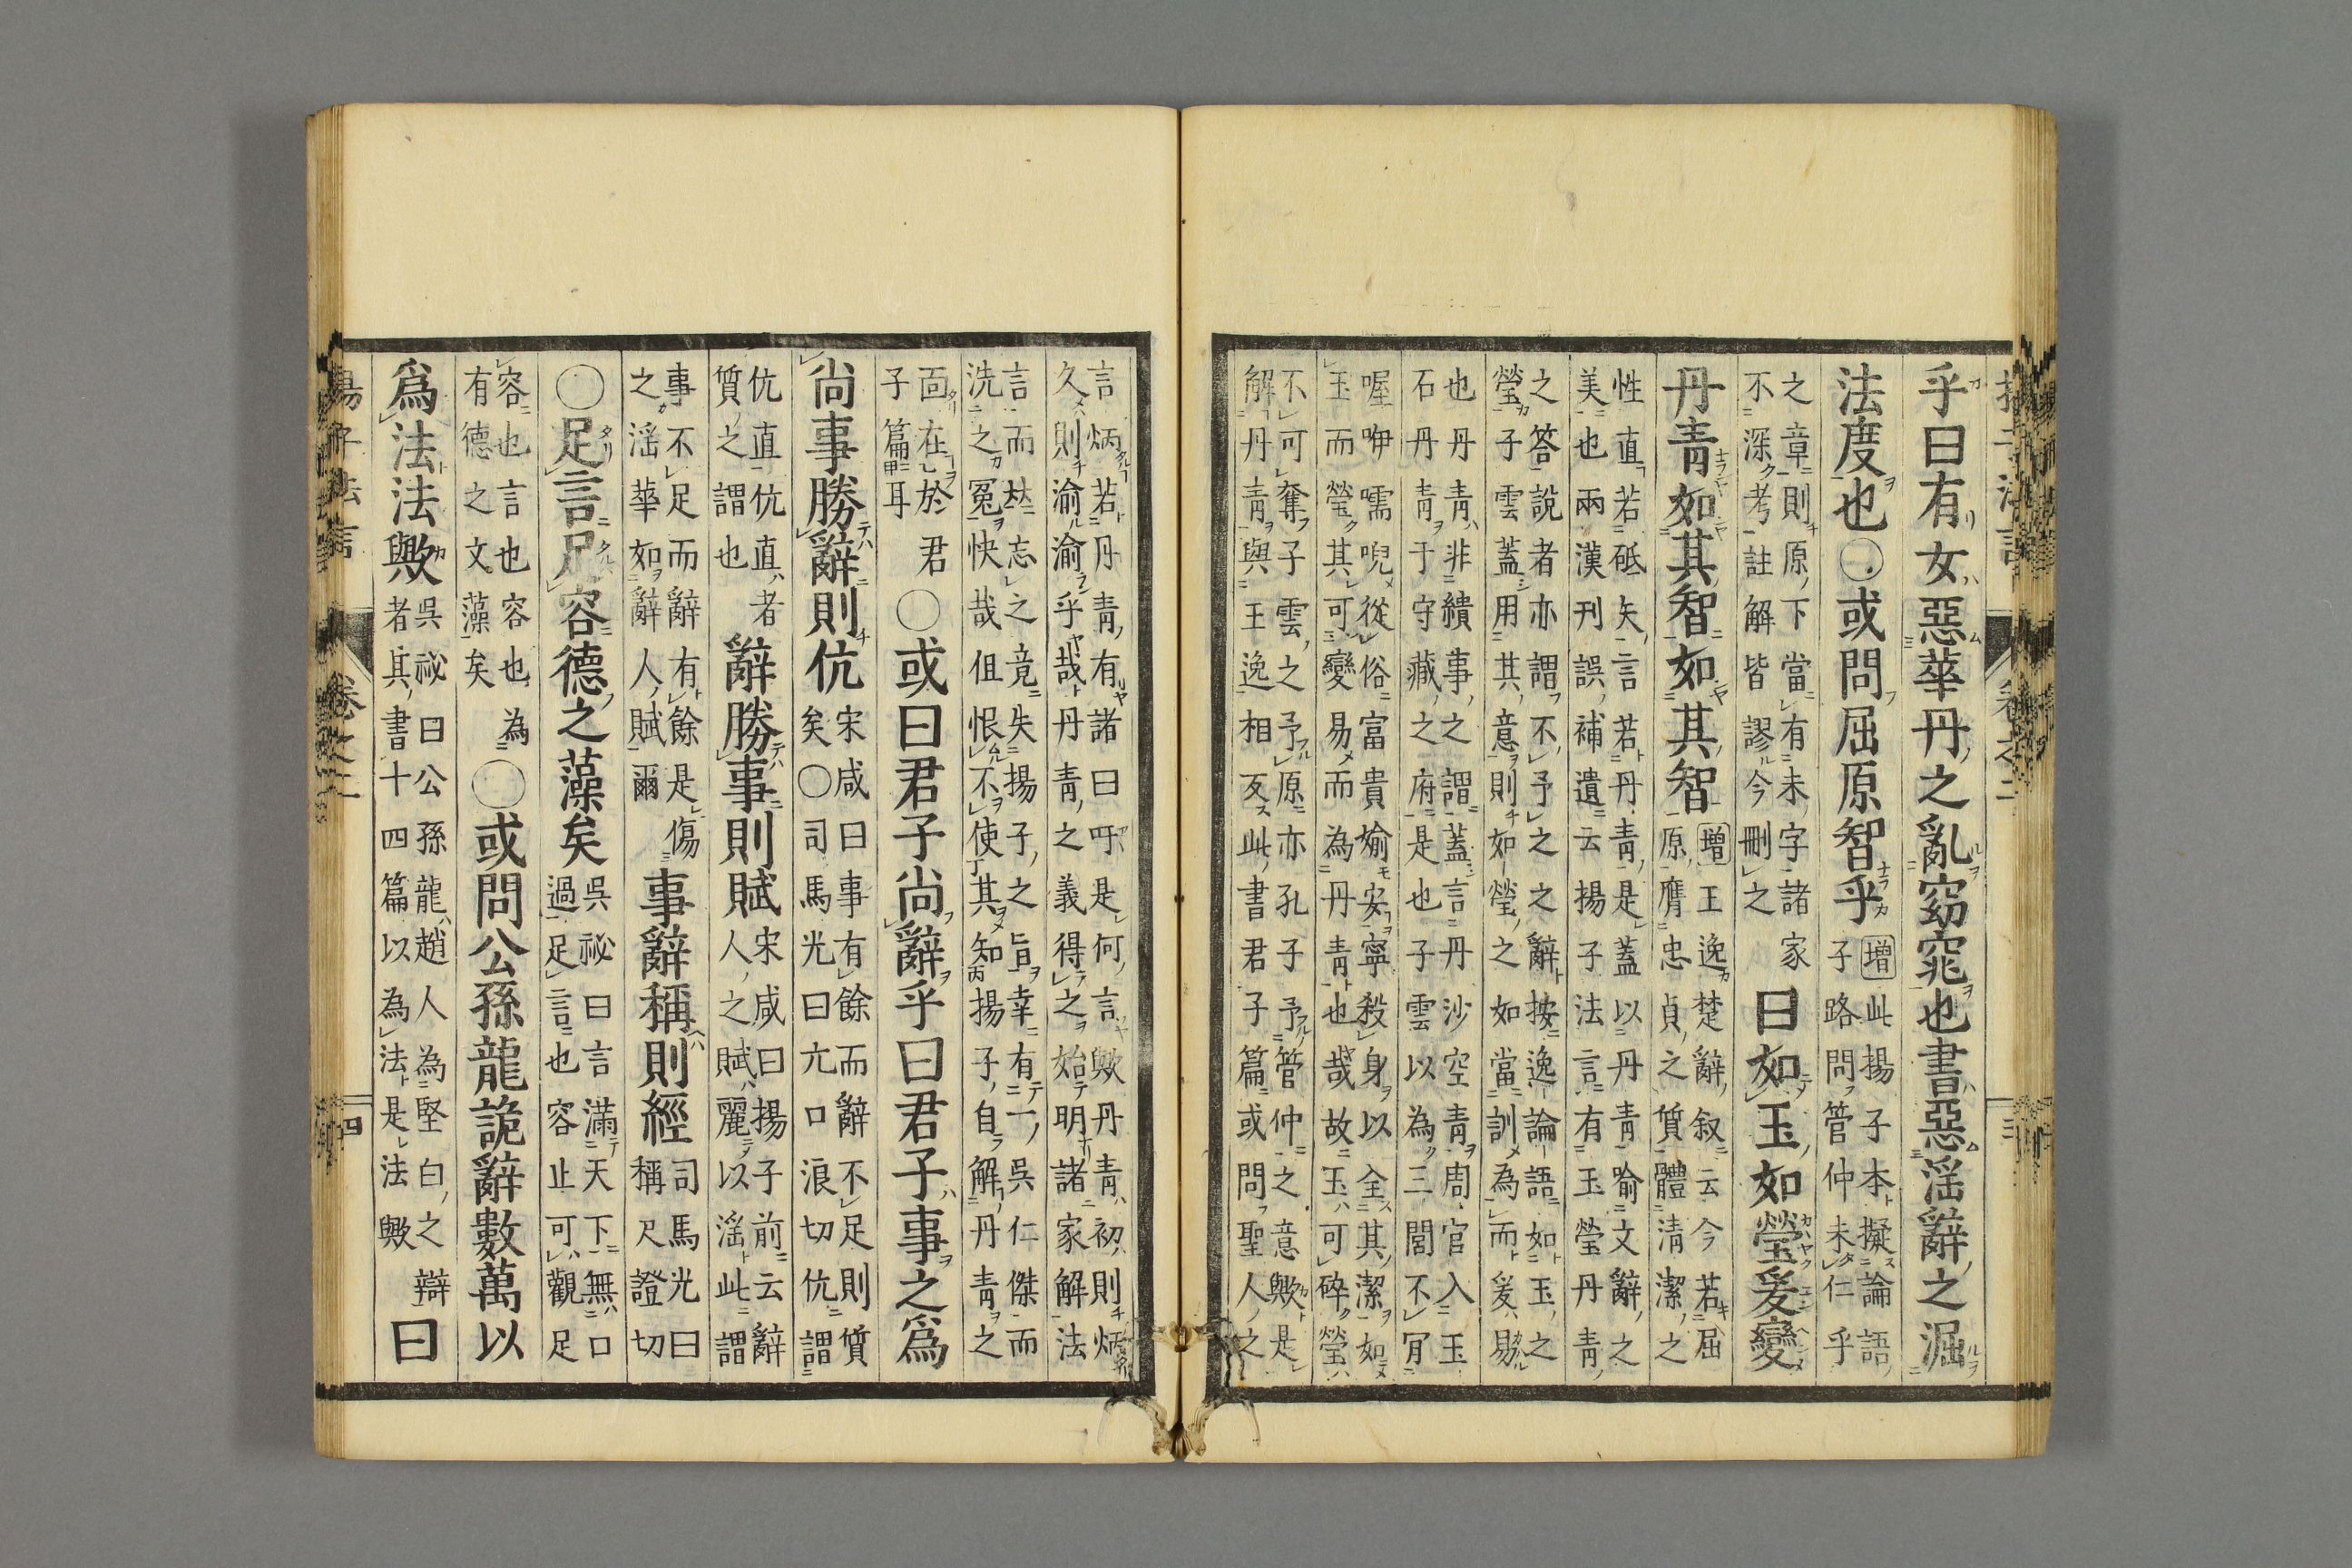 乎曰有女惡華丹之亂窈窕也書惡淫辭之淈
法度也○或問屈原智乎增此揚子本擬論語
子路問管仲未仁乎
之章則原下當有未字諸家
不深考註解皆謬今刪之
曰如玉如瑩爰變
丹靑如其智如其智增王逸楚辭叙云今若屈
原膺忠貞之質體清潔之
性直若砥矢言若丹青是蓋以丹青喻文辭之
美也兩漢刊誤補遺云揚子法言有玉瑩丹青
之答說者亦謂不予之之辭按逸論語如玉之
瑩子雲蓋用其意則如瑩之如當訓為而爰易
也丹青非繢事之謂蓋言丹沙空青周官入玉
石丹青于守藏之府是也子雲以為三閭不肎
喔咿嚅唲從俗富貴婾安寧殺身以全其潔如
玉而瑩其可變易而為丹青也哉故玉可碎瑩
不可奪子雲之予原亦孔子予管仲之意歟是
解丹青與王逸相反此書君子篇或問聖人之
言炳若丹青有諸曰吁是何言歟丹青初則炳
久則渝渝乎哉丹青之義得之始明諸家解法
言而忘之竟失揚子之旨幸有一吳仁傑而
洗之冤快哉但恨不使其知揚子自解丹青之
面在於君
子篇耳
○或曰君子尚辭乎曰君子事之爲
尚事勝辭則伉宋咸曰事有餘而辭不足則質
矣○司馬光曰亢口浪切伉謂
伉直伉直者
質之謂也
辭勝事則賦宋咸曰揚子前云辭
人之賦麗以淫此謂
事不足而辭有餘是傷
之淫華如辭人賦爾
事辭稱則經司馬光曰
稱尺證切
○足言足容德之藻矣吳祕曰言滿天下無口
過足言也容止可觀足
容也言也容也為
有德之文藻矣
○或問公孫龍詭辭數萬以
爲法法歟吳祕曰公孫龍趙人為堅白之辯
者其書十四篇以為法是法歟
曰
揚子法言 卷之二 四